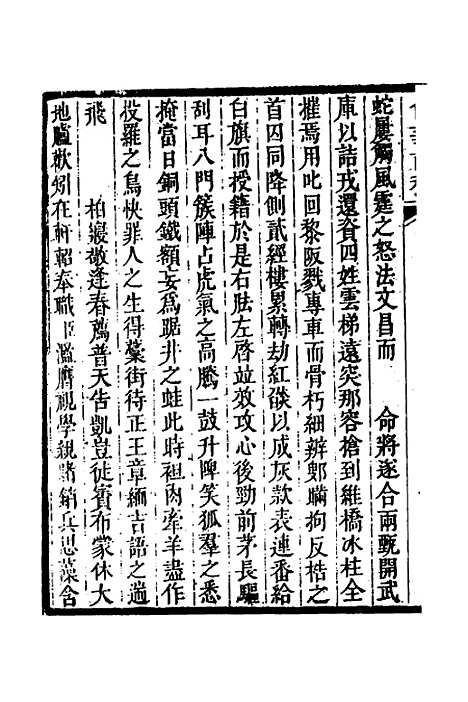 蛇屢觸風霆之怒法文昌而　命將遂合兩甄開武
庫以詰戎還賁四姓雲梯遠突那容槍到維橋冰柱全
摧焉用叱回黎阪戮專車而骨朽細辨鄋瞞拘反梏之
首囚同降側貳經樓累轉劫紅燄以成灰款表連番給
白旗而授籍於是右胠左啓竝效攻心後勁前茅長驅
刮耳八門簇陣占虎氣之高騰一鼓升陴笑狐羣之悉
掩當日銅頭鐵額妄爲踞井之蛙此時袒肉牽羊盡作
投羅之鳥快罪人之生得藁街待正王章緬吉語之遄
飛　柏寢敬逢春薦普天告凱豈徒賓布蒙休大
地臚歡矧在軒軺奉職臣濫膺視學親睹銷兵思藻含